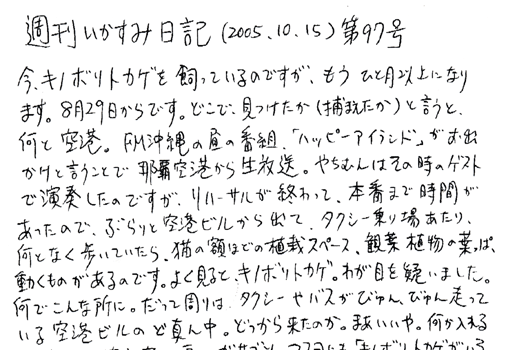 週刊いかすみ日記(2005.10.15)第97号
今、キノボリトカゲを飼っているのですが、もうひと月以上になり
ます。8月29日からです。どこで、見つけたか(捕まえたか)と言うと、
何と空港。FM沖縄の昼の番組、「ハッピーアイランド」がお出
かけと言うことで那覇空港から生放送。やちむんはその時のゲスト
で演奏したのですが、リハーサルが終わって、本番まで時間が
あったので、ぶらりと空港ビルから出て、タクシー乗り場あたり、
何となく歩いていたら、猫の額ほどの植栽スペース、観葉植物の葉っぱ、
動くものがあるのです。よく見ると、キノボリトカゲ。わが目を疑いました。
何でこんな所に。だって周りは、タクシーやバスがびゅん、びゅん走って
いる空港ビルのど真ん中。どっから来たのか。まあいいや。何か入れる